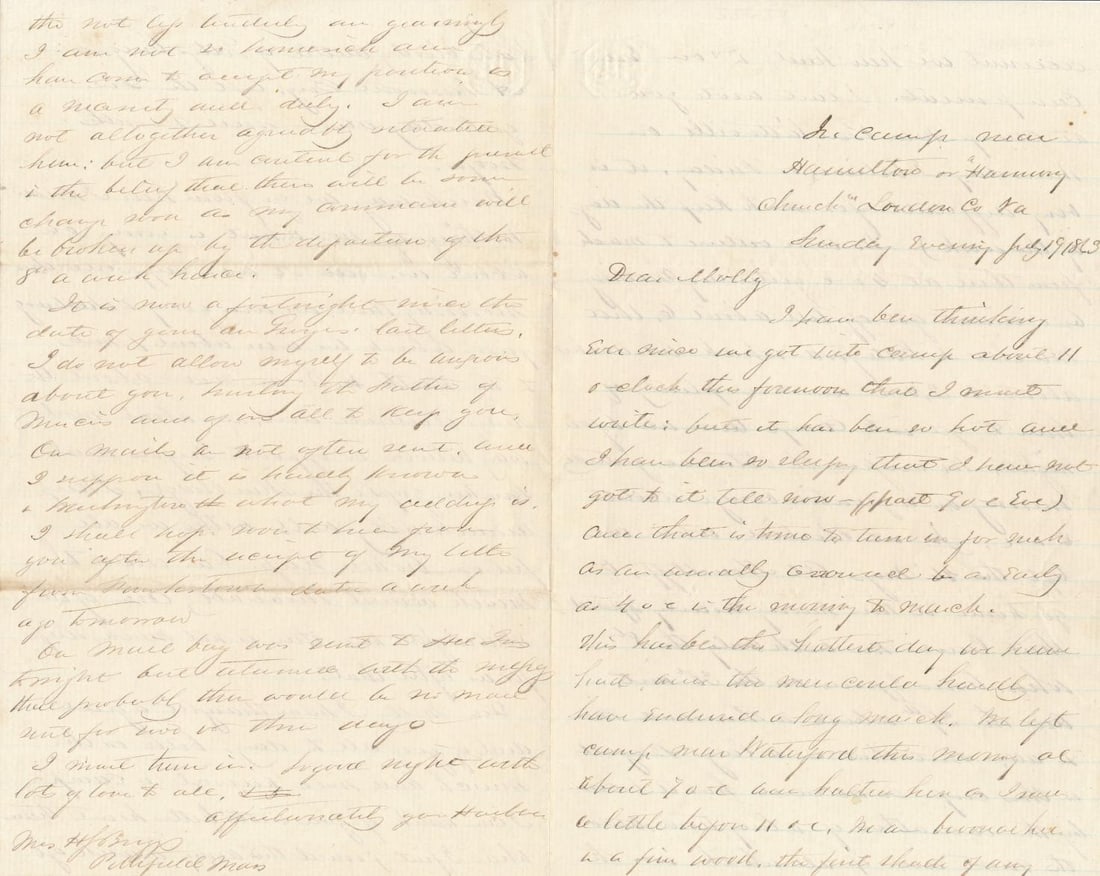 In camp near
Hamilton or "Harmony
Church" Loudon Co Va
Sunday Evening July 19 1863
Dear Molly
I have been thinking
Ever since we got into camp about 11
o clock this forenoon that I must
write: but it has been so hot and
I have been so sleepy that I have not
got to it till now - (past 9 o c Eve)
and that is time to turn in for such
as are usually aroused as Early
as 4 o c in the morning to march.
This has been the hottest day we have
had, and the men could hardly
have Endured a long march. We left
camp near Waterford this morng at
about 7 o c and halted here as I said
a little before 11 o c. We are bivouacked
in a fine wood, the first shade of any
the not less tenderly
I am not so homesick and
have come to accept my position as
a necessity and duty. I am
not altogether agreeably situated
here: but I am content for the present
in the belief that there will be some
change soon as my command will
be broken up by the departure of the
8th a week hence.
It is now a fortnight since the
date of your last letters.
I do not allow myself to be anxious
about you, trusting the Father of
Mercies and of us all to keep you.
Our mails are not often sent, and
I suppose it is hardly known
in Washington what my address is.
I shall hope soon to hear from
you after the receipt of my letter
from Funkstown dated a week
ago tomorrow
Our mail bag was sent to
tonight but returned with the message
that probably there would be no mail
sent for two or three days
I must turn in. So good night with
lots of love to all.
affectionately your Husband
Mrs H S Briggs
Pittsfield Mass